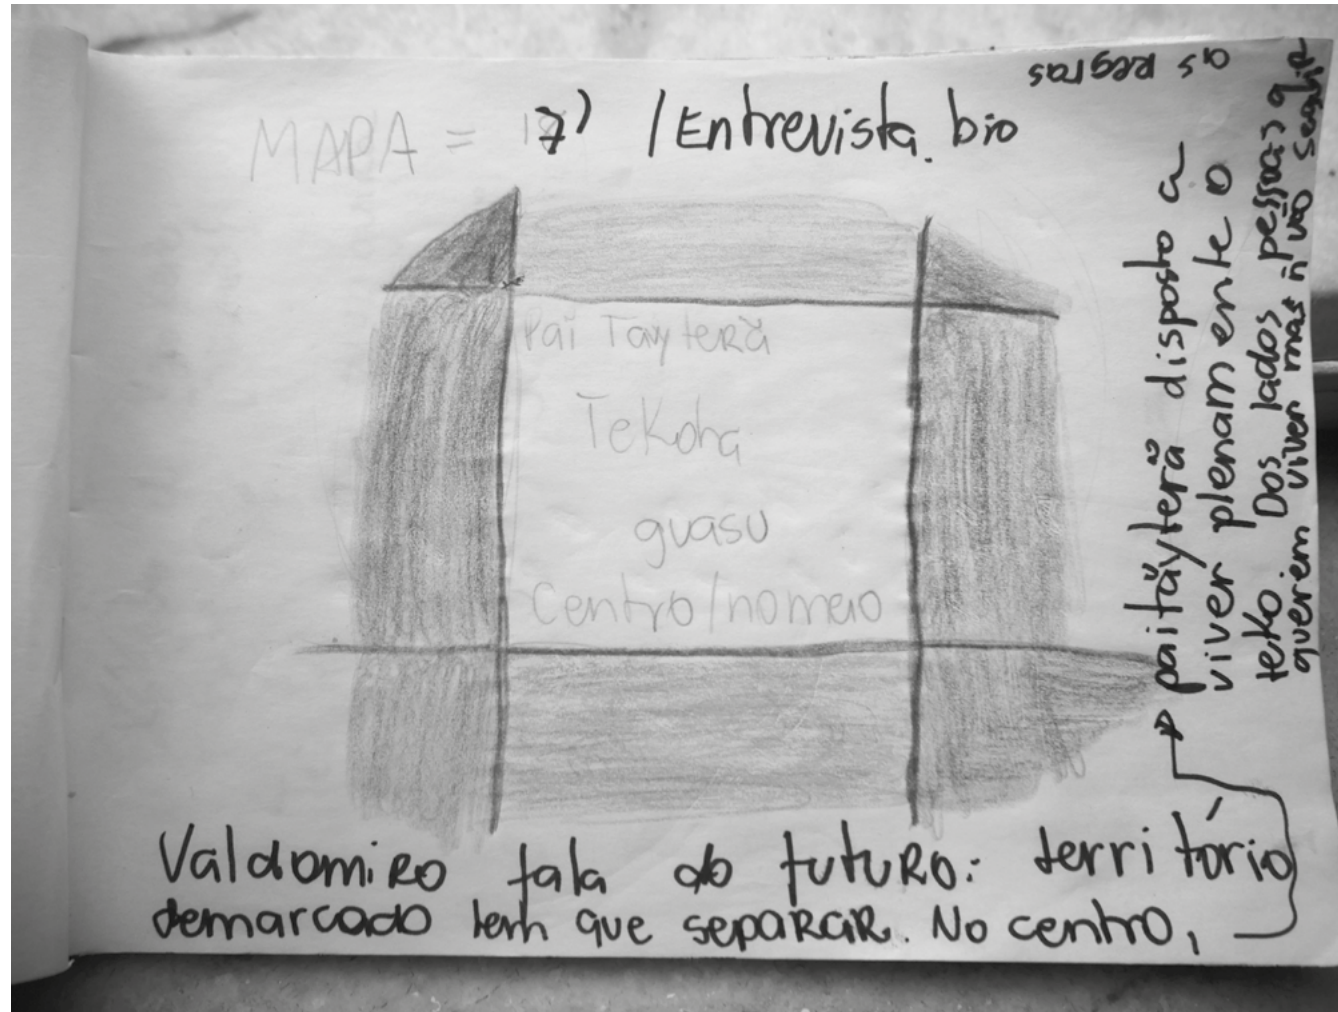 MAPA = 7) / Entrevista. bio
Pai Tavyterã
Tekoha
guasu
Centro/no meio
Valdomiro fala do futuro: território
demarcado tem que separar. No centro,
paitãyterã disposto a
viver plenamente o
teko Dos lados pessoas q
querem viver mas ñ vão seguir
as regras